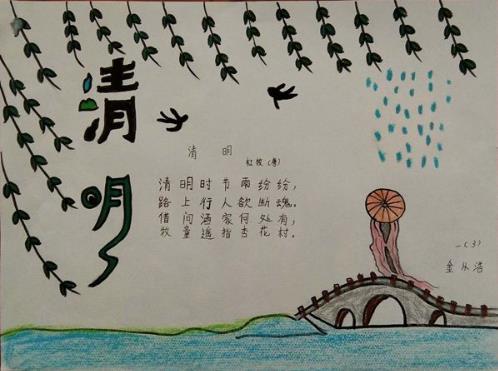 清明
清 明
杜牧(唐)
清明时节雨纷纷,
路上行人欲断魂。
借问酒家何处有,
牧童遥指杏花村。
一(3)